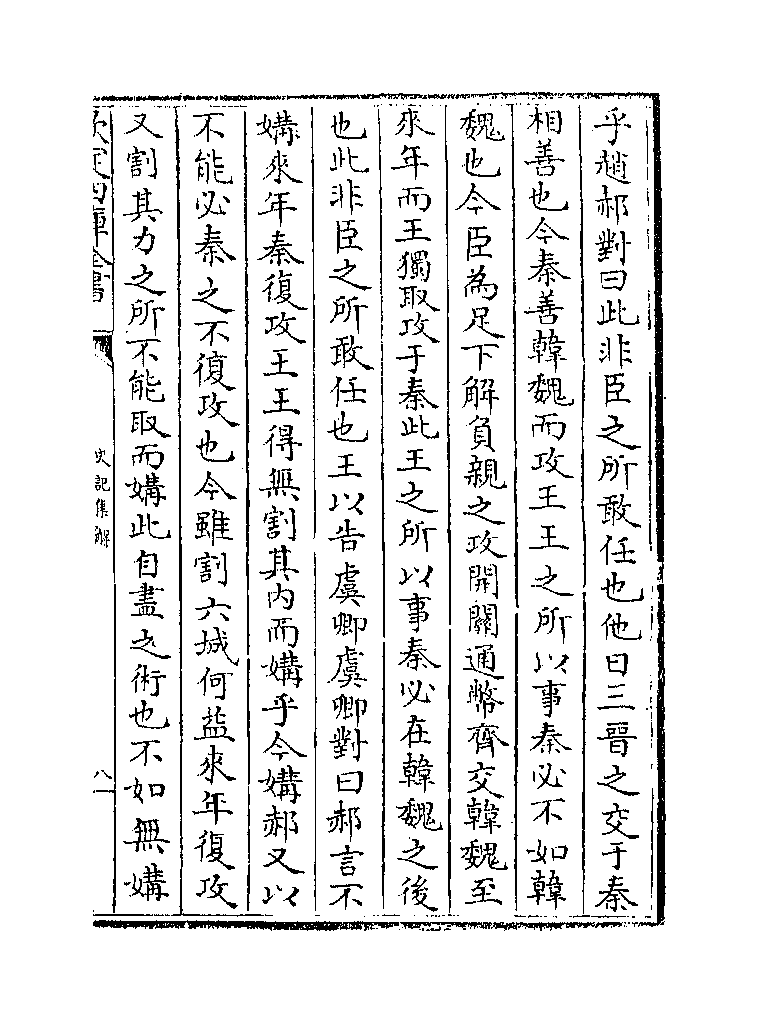 乎趙郝對曰此非臣之所敢任也他日三晉之交于秦
相善也今秦善韓魏而攻王王之所以事秦必不如韓
魏也今臣為足下解負親之攻開關通幣齊交韓魏至
來年而王獨取攻于秦此王之所以事秦必在韓魏之後
也此非臣之所敢任也王以告虞卿虞卿對曰郝言不
媾來年秦復攻王王得無割其內而媾乎今媾郝又以
不能必秦之不復攻也今雖割六城何益來年復攻
又割其力之所不能取而媾此自盡之術也不如無媾
欽定四庫全書
史記集解
八一